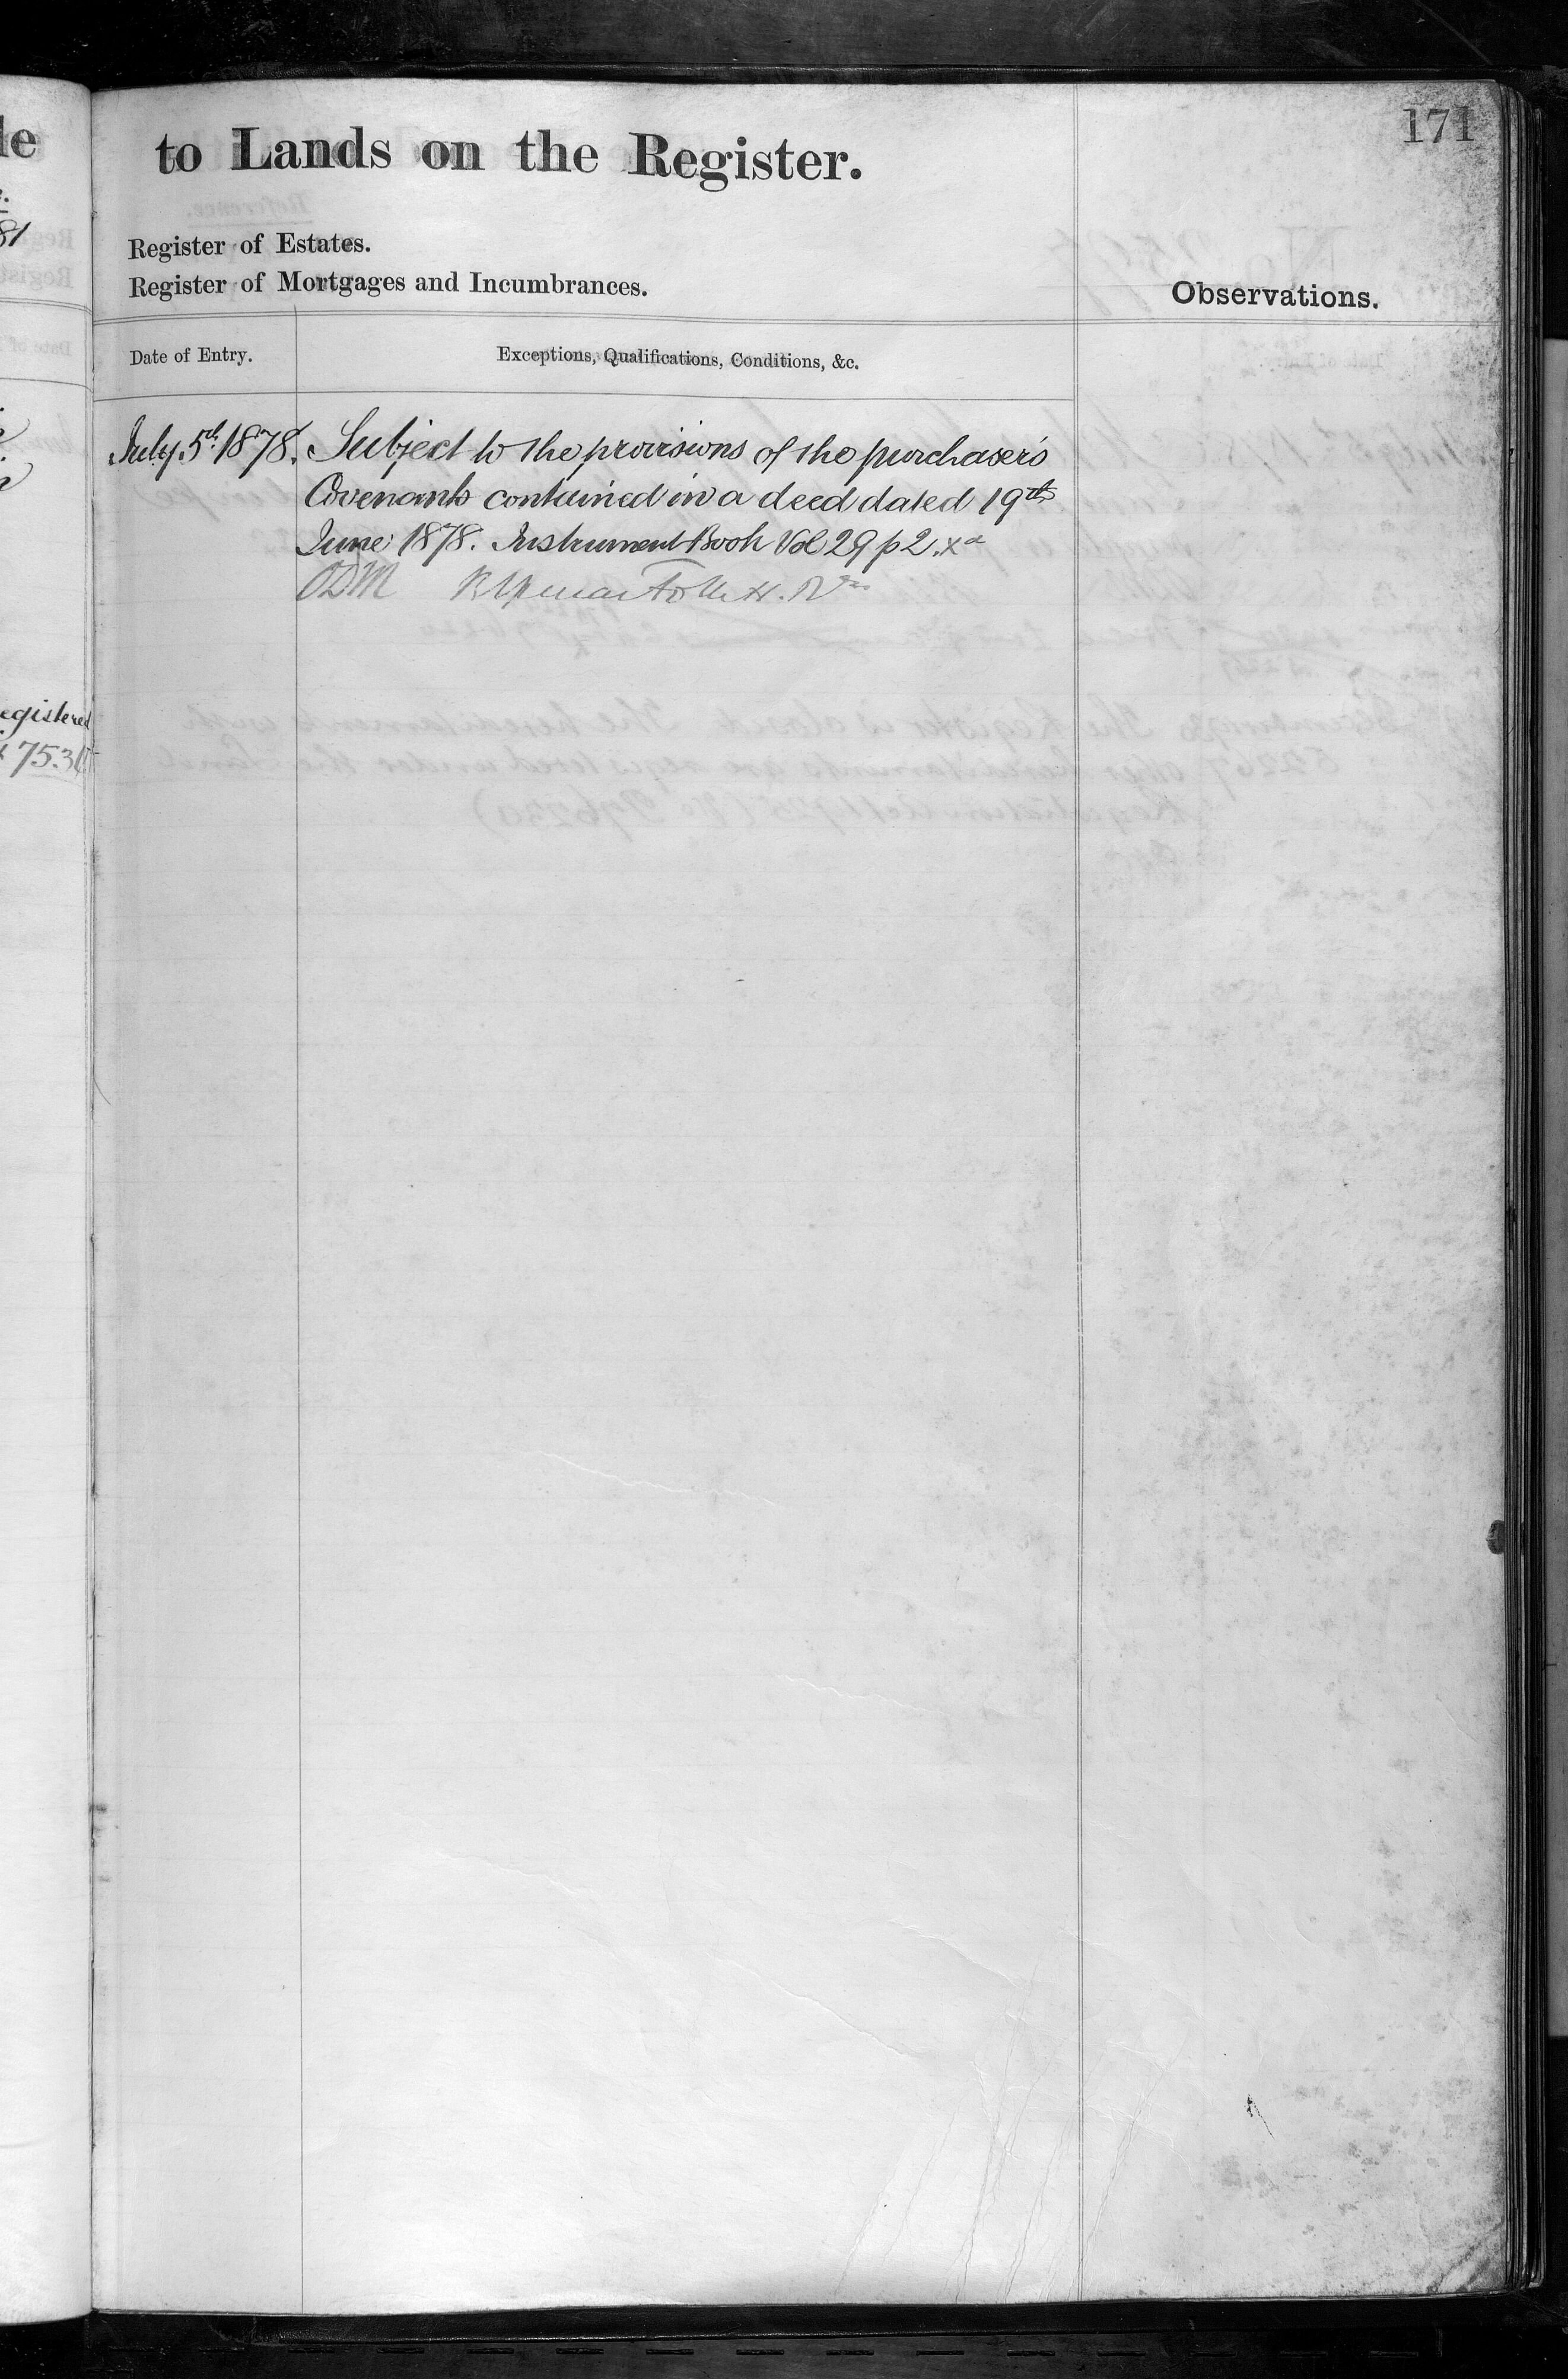 le
171
to Lands on the Register.
81
Register of Estates.
Register of Mortgages and Incumbrances.
Observations.
Date of Entry.
Exceptions, Qualifications, Conditions, &c.
July 5th 1878. Subject to the provisions of the purchaser's
Covenants contained in a deed dated 19th
June 1878. Instrument Book Vol 29 p 2. xd
ODM
egistered
75.3